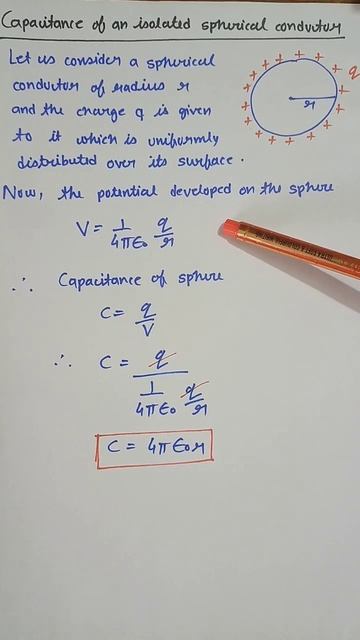 Capacitance of an isolated spherical conductor
Let us consider a spherical
conductor of radius r
and the charge q is given
to it which is uniformly
distributed over its surface.
q
r
Now, the potential developed on the sphere
V = 1/4πε₀ q/r
∴ Capacitance of sphere
C = q/V
∴ C = q/(1/4πε₀ q/r)
C = 4πε₀r